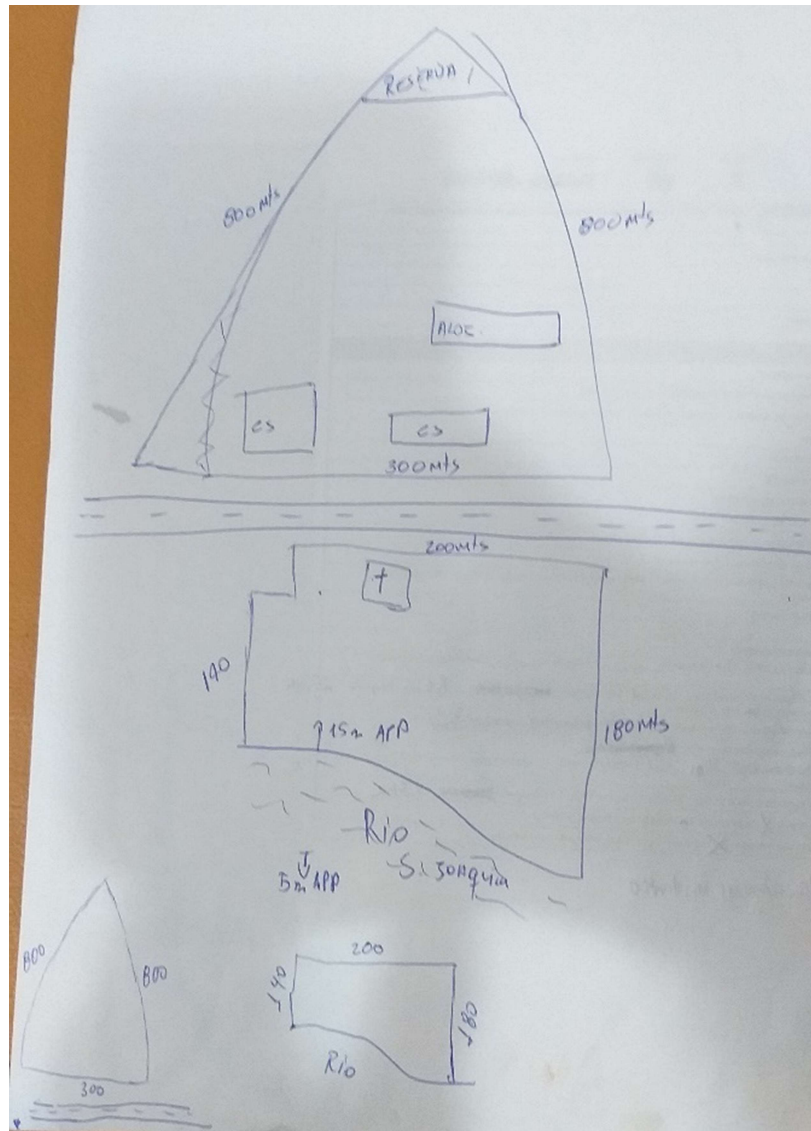 RESERVA 1
800 Mts
800 Mts
ALOZ.
CS
CS
300 Mts
200 mts
†
140
15m APP
180 Mts
Rio
5m APP
800
800
300
200
140
180
Rio